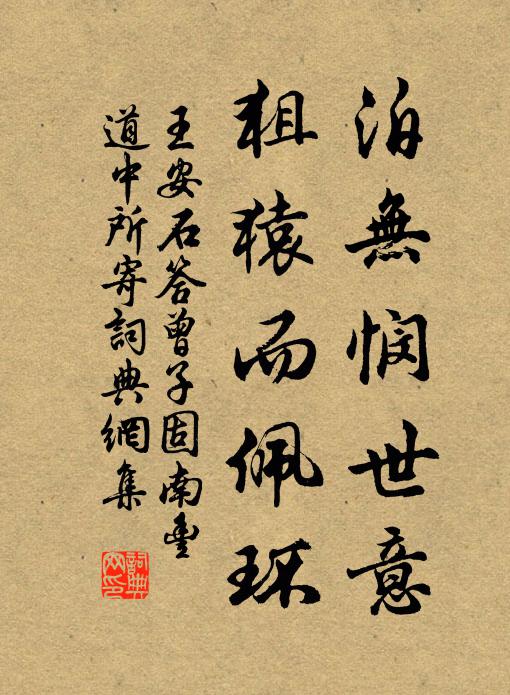 泊無悯世意
狙猿而佩环
王安石答曾子固南豐
道中所寄詞典網集
詞典
网印